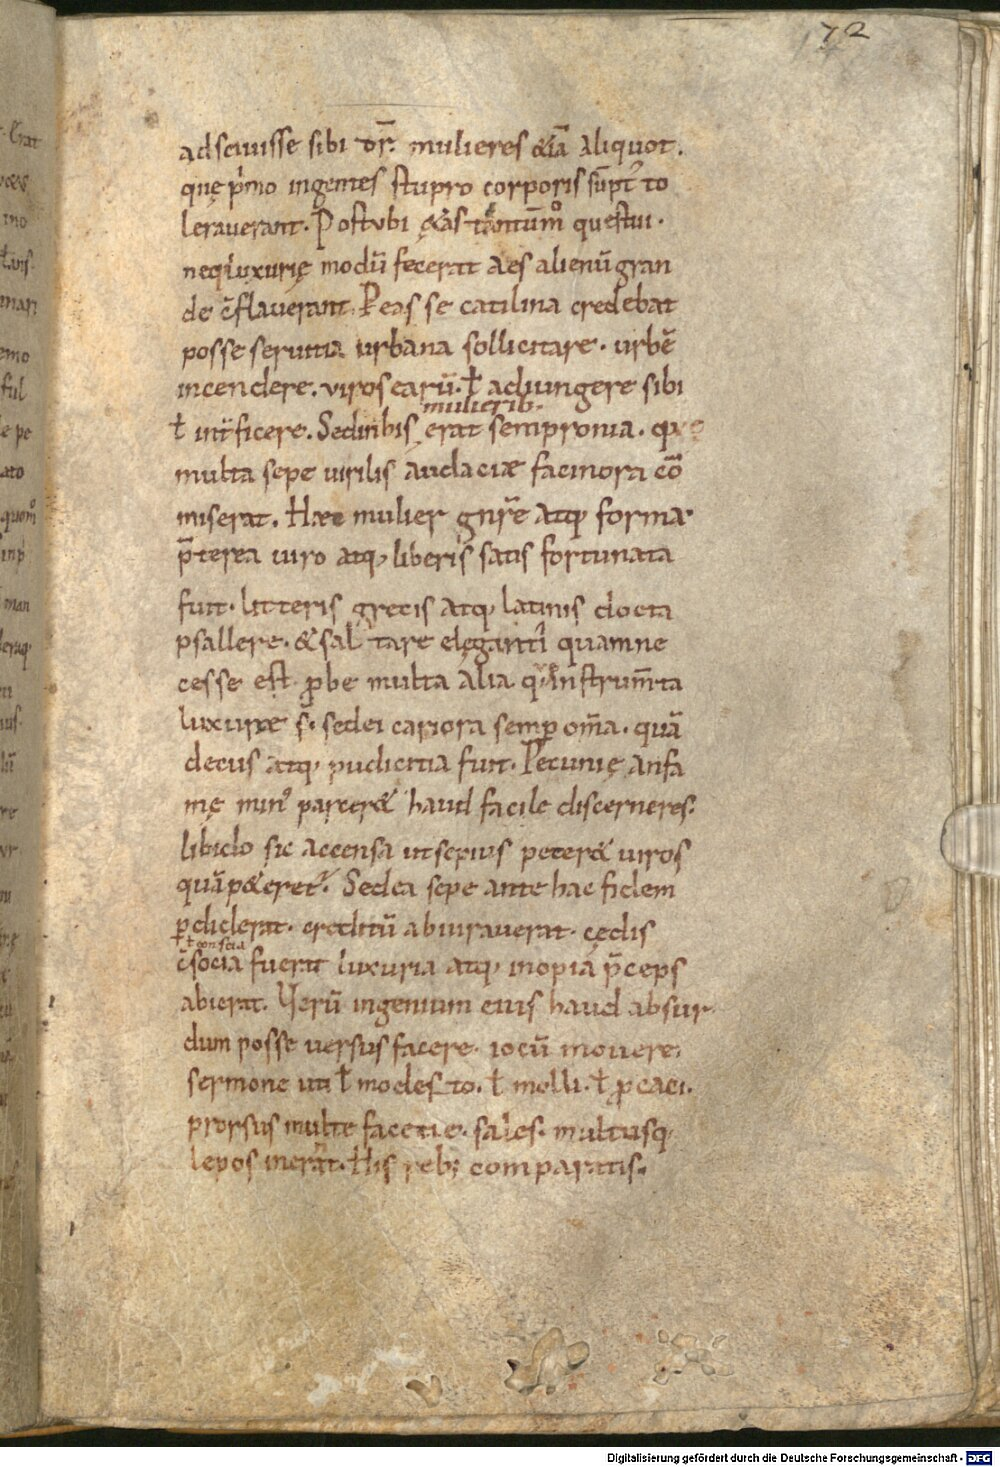 72
adsciuisse sibi dr̄. mulieres &iā aliquot.
quę p̄mo ingentes stupro corporis sūpt' to
lerauerant. Post ubi ętas tantūm̊ questui.
neq; luxurię modū fecerat aes alienū gran
de c̄flauerant. P eas se catilina credebat
posse seruitia urbana sollicitare. urbē
incendere. viros earū. ł adiungere sibi
mulierib;
ł int̄ficere. Sed in his erat sempronia. que
multa sepe virilis audaciæ facinora cō
miserat. Hæc mulier gn̄re atq; forma
p̄terea uiro atq; liberis satis fortunata
fuit. litteris grecis atq; latinis docta
psallere. & sal tare eleganti' quam ne
cesse est ꝓbe multa alia. q; instrum̄ta
luxuriæ s̄. sed ei cariora semꝑ om̄a. quā
decus atq; pudicitia fuit. Pecunię an fa
mę min' parcer& haud facile discerneres.
libido sic accensa ut sepius peter& uiros
quā p&eret'. Sed ea sepe ante hac fidem
ꝑdiderat. creditū abiurauerat. cędis
ł conscia
c̄socia fuerat luxuria atq; inopia p̄ceps
abierat. Verū ingenium eius haud absur
dum posse uersus facere. iocū mouere.
sermone uti ł modesto. ł molli. ł ꝓcaci.
prorsus multe facetie. sales. multusq;
lepos inerat. His reb; comparatis.
Digitalisierung gefördert durch die Deutsche Forschungsgemeinschaft - DFG